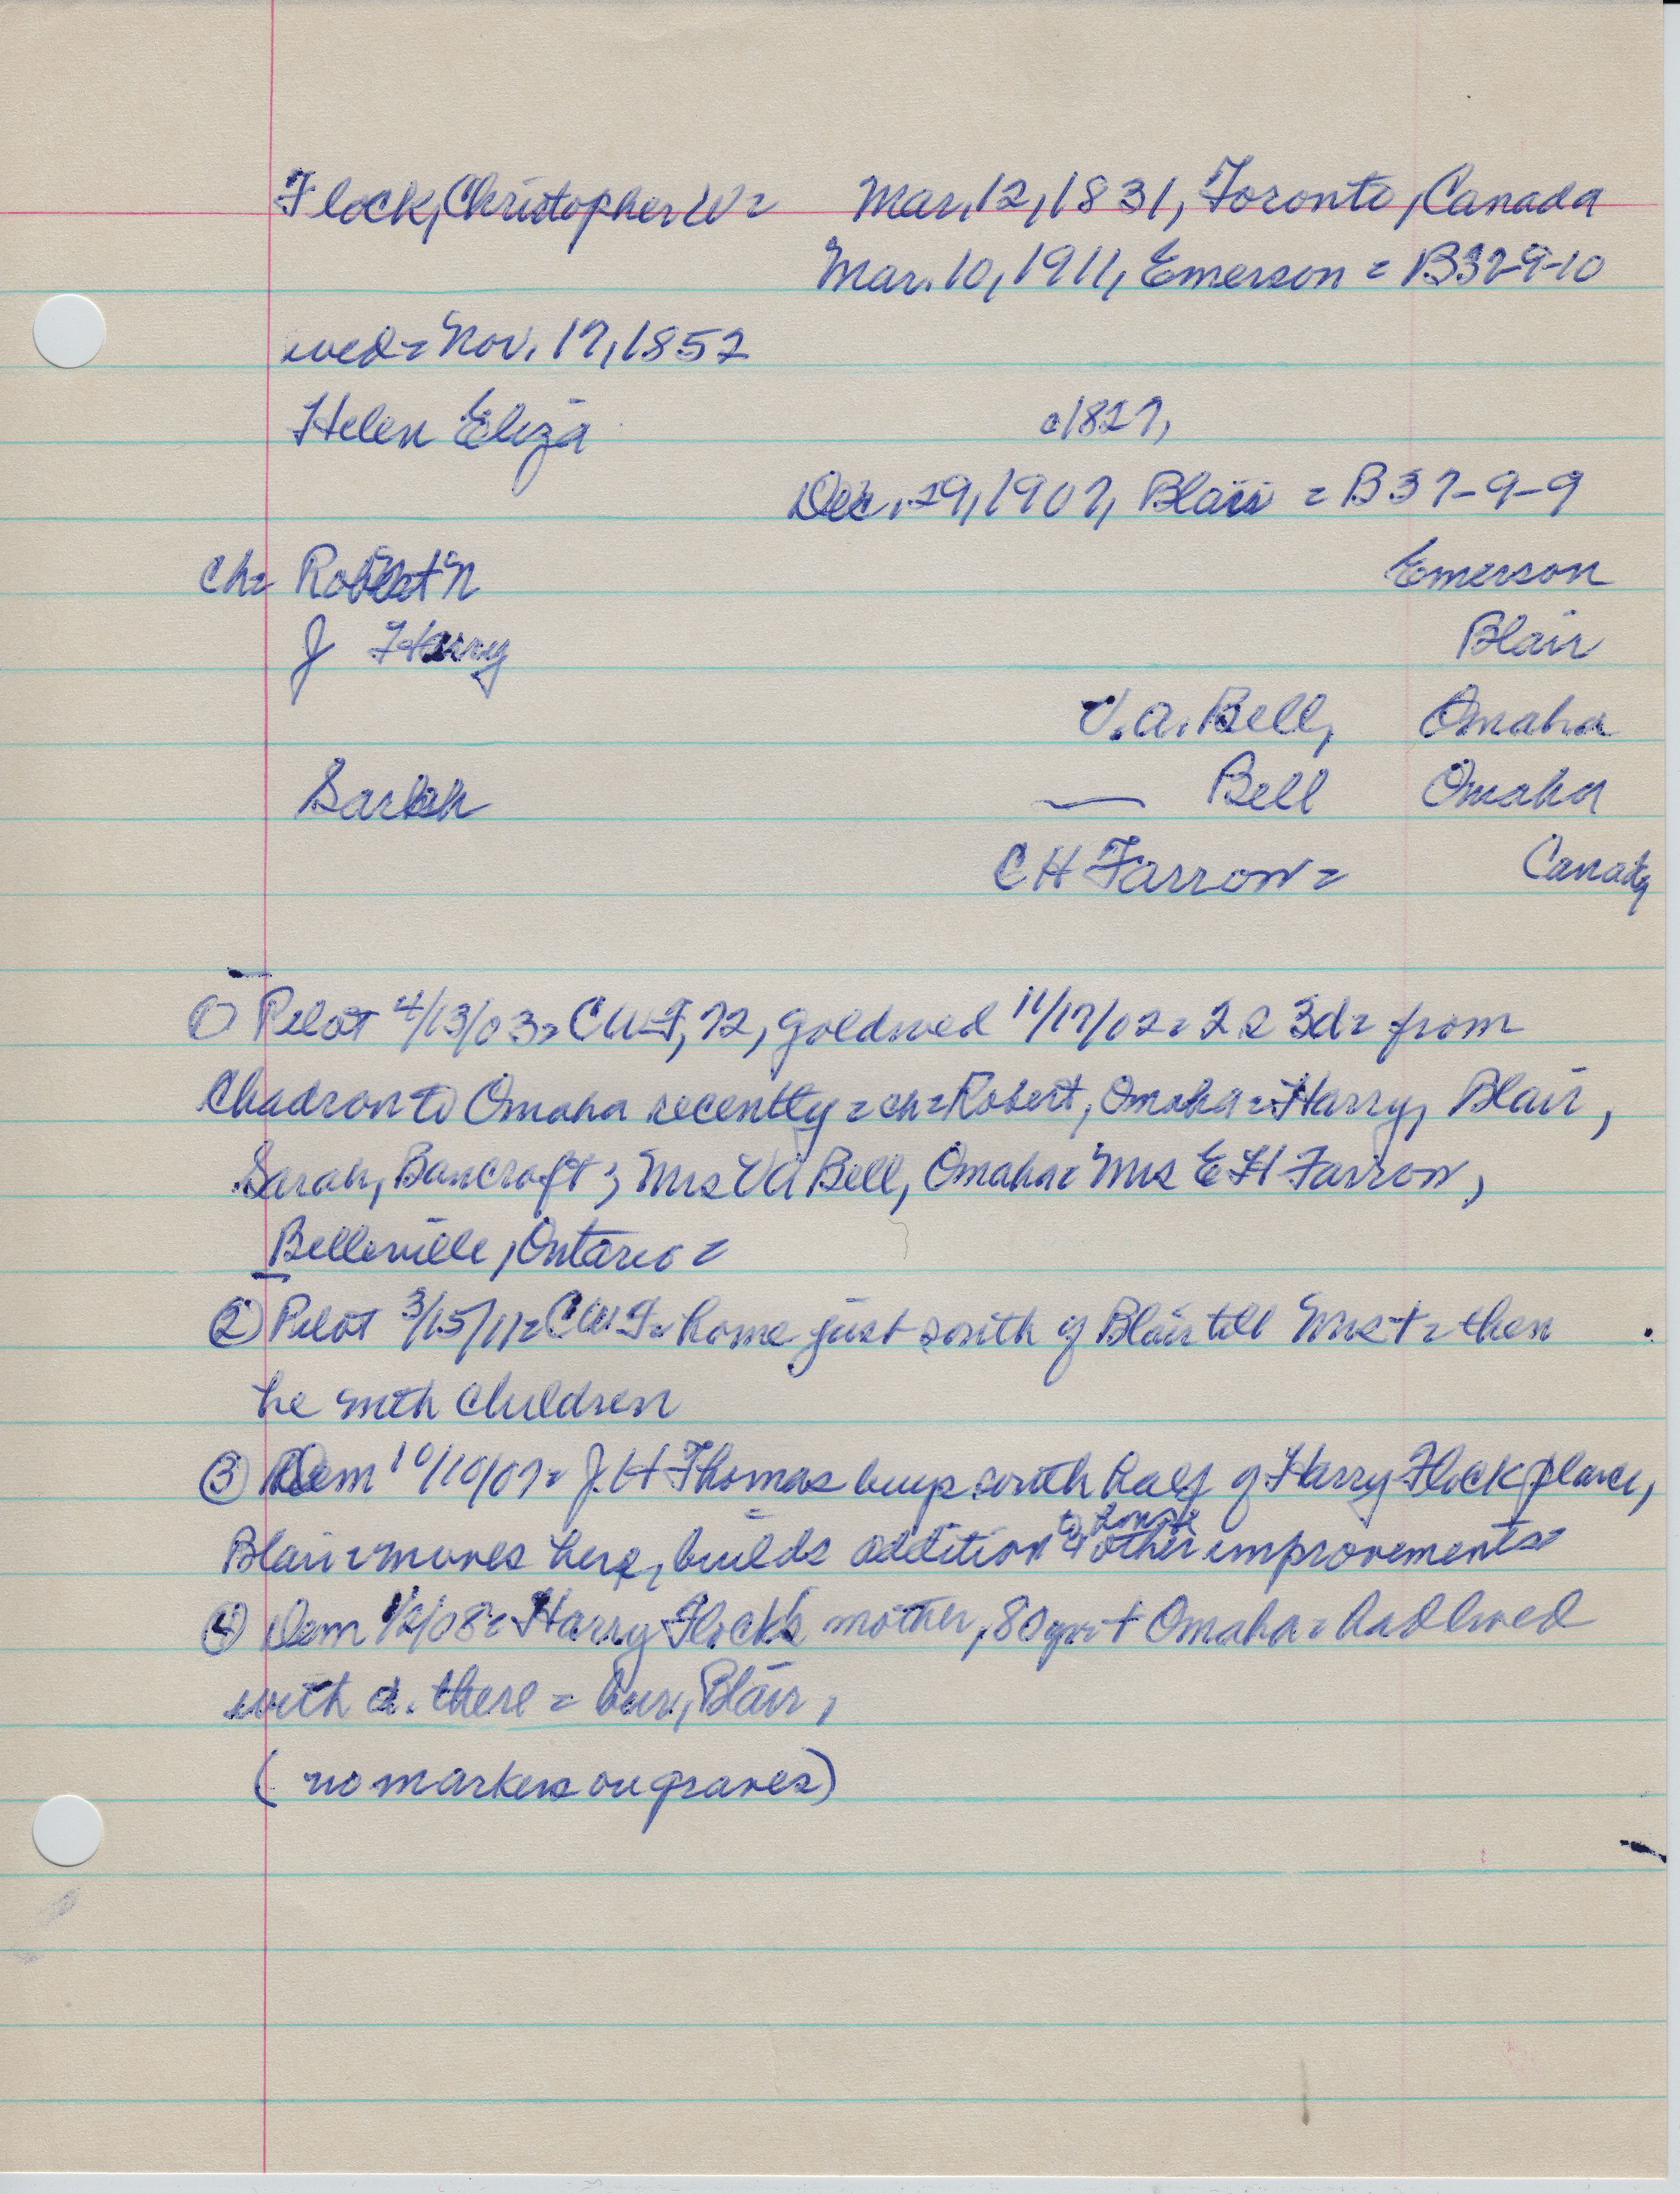 Flock, Christopher W = Mar. 12, 1831, Toronto, Canada
Mar. 10, 1911, Emerson = B37-9-10
wed = Nov. 17, 1852
Helen Eliza c1827,
Dec. 29, 1907, Blair = B37-9-9
Ch = Robert N Emerson
J Harry Blair
V. A. Bell, Omaha
Sarah — Bell Omaha
C H Farrow = Canada
① Pilot 4/13/03 = CWF, 72, gold wed 11/17/02 = 2 s 3d = from
Chadron to Omaha recently = ch = Robert, Omaha = Harry, Blair,
Sarah, Bancroft; Mrs VA Bell, Omaha = Mrs E H Farrow,
Belleville, Ontario =
② Pilot 3/15/11 = CWF = home just south of Blair till Mrs + = then
he with children
③ Dem 10/10/07 = J. H Thomas buys south half of Harry Flock place,
Blair = moves here, builds addition to house & other improvements =
④ Dem 1/2/08 = Harry Flock's mother, 80 yr + Omaha = had lived
with d. there = bur, Blair,
(no markers on graves)